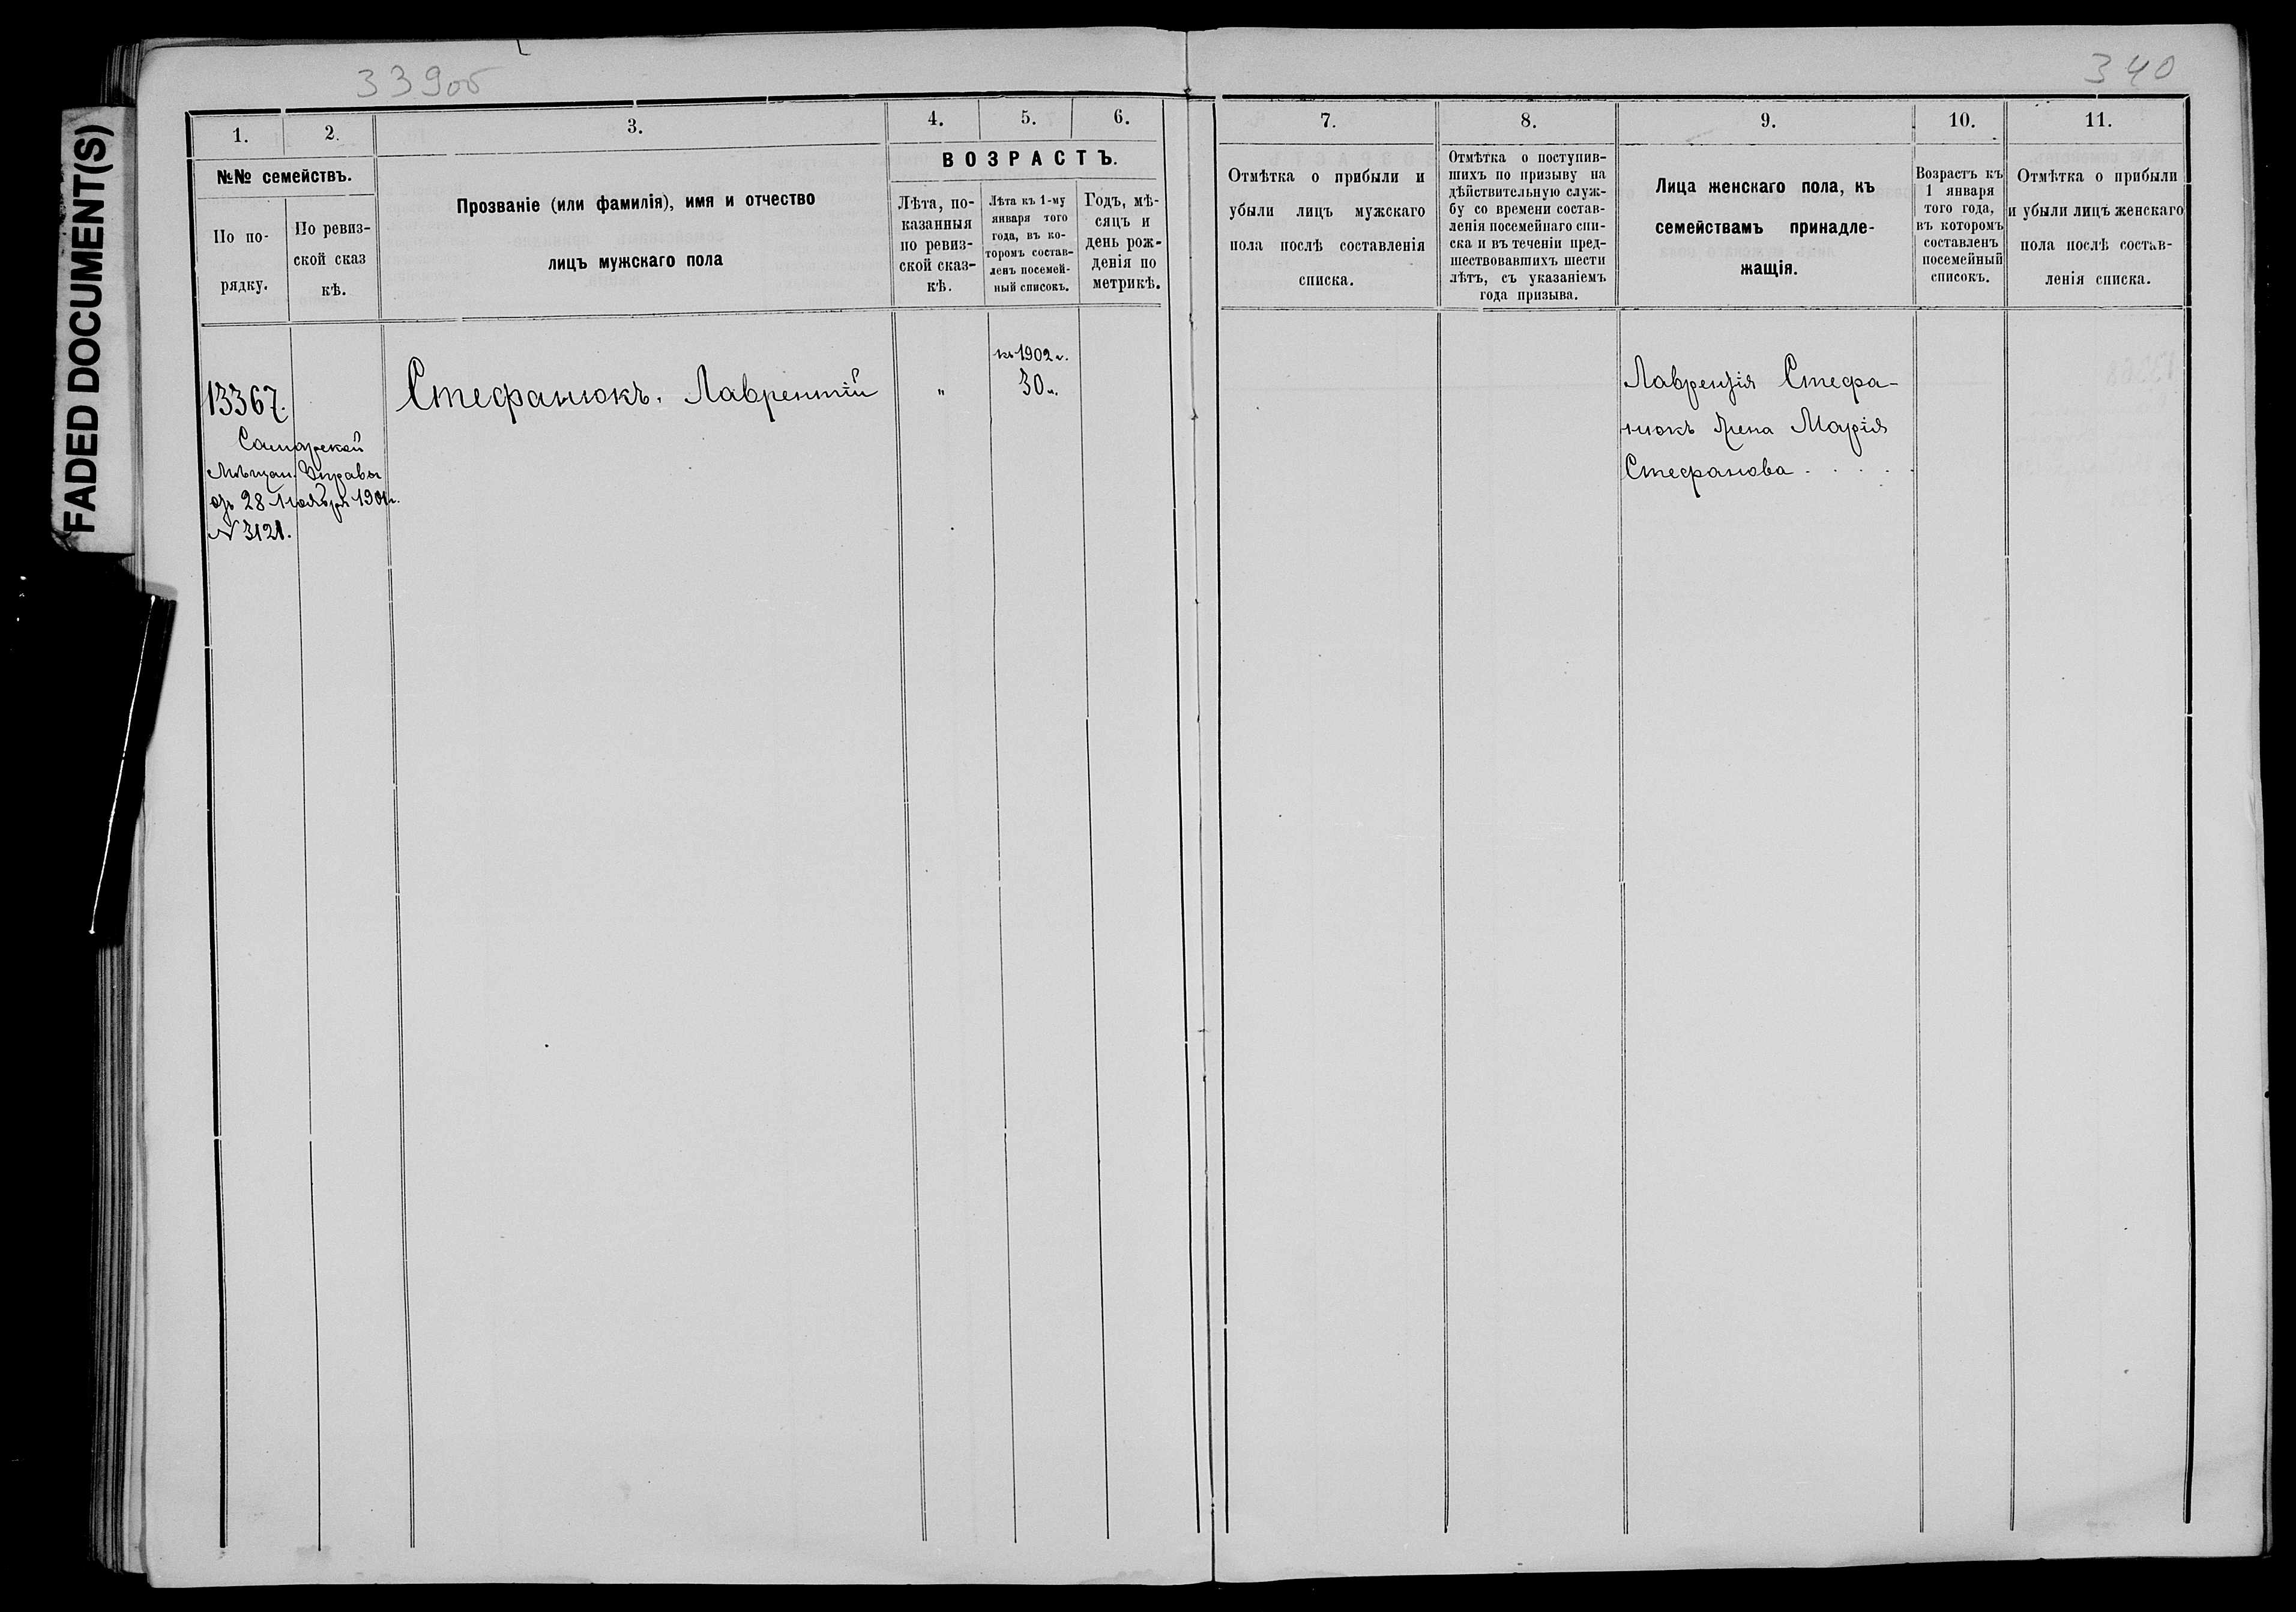 FADED DOCUMENT(S)
339об
340
1.
2.
3.
4.
5.
6.
№№ семействъ.
По по-
рядку.
По ревиз-
ской сказ
кѣ.
Прозваніе (или фамилія), имя и отчество
лицъ мужскаго пола
ВОЗРАСТЪ.
Лѣта, по-
казанныя
по ревиз-
ской сказ-
кѣ.
Лѣта къ 1-му
января того
года, въ ко-
торомъ состав-
ленъ посемей-
ный списокъ.
Годъ, мѣ-
сяцъ и
день рож-
денія по
метрикѣ.
7.
8.
9.
10.
11.
Отмѣтка о прибыли и
убыли лицъ мужскаго
пола послѣ составленія
списка.
Отмѣтка о поступив-
шихъ по призыву на
дѣйствительную служ-
бу со времени состав-
ленія посемейнаго спи-
ска и въ теченіи пред-
шествовавшихъ шести
лѣтъ, съ указаніемъ
года призыва.
Лица женскаго пола, къ
семействамъ принадле-
жащія.
Возрастъ къ
1 января
того года,
въ которомъ
составленъ
посемейный
списокъ.
Отмѣтка о прибыли
и убыли лицъ женскаго
пола послѣ состав-
ленія списка.
13367.
Самарской
Мѣщан. Управы
отъ 28 Ноября 1901г.
№ 3121.
Стефанюкъ, Лаврентій
"
къ 1902 г.
30 л.
Лаврентія Стефа-
нюкъ жена Марія
Стефанова . . . . .